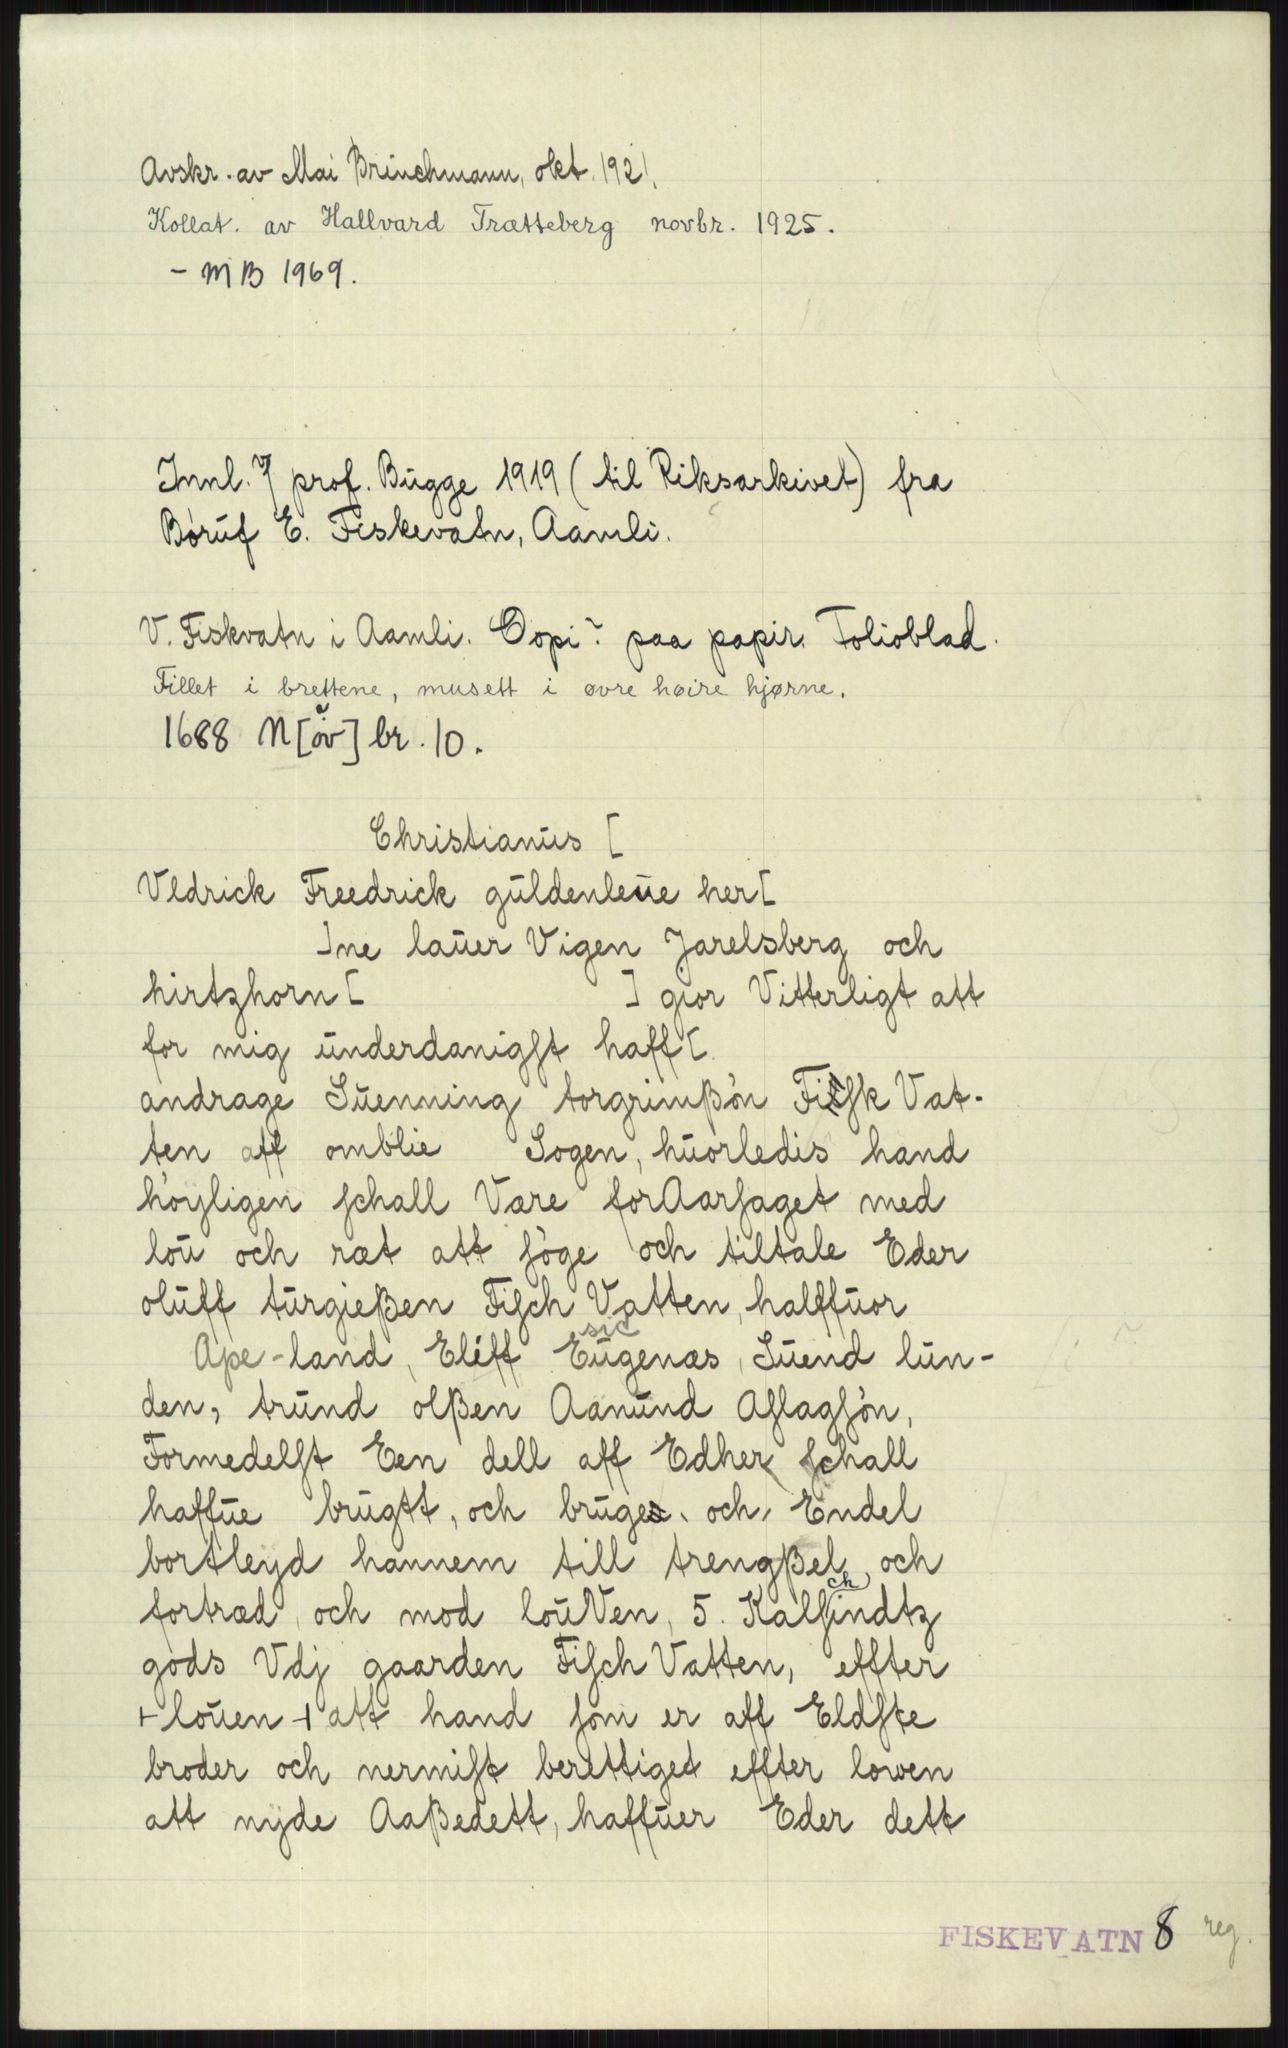 Avskr. av Mai Brinchmann, okt. 1921.
Kollat. av Hallvard Trætteberg novbr. 1925.
- MB 1969.
Innl. v/ prof. Bugge 1919 (til Riksarkivet) fra
Børuf E. Fiskevatn, Aamli.
V. Fiskvatn i Aamli. Copi? paa papir. Folioblad.
Fillet i brettene, musett i øvre høire hjørne.
1688 N[ov]br. 10.
Christianus [
Vldrick Freedrick guldenleue her[
]ne lauer Vigen Jarelsberg och
hirtzhorn [ ] giør Vitterligt att
for mig underdanigst haff[
andrage Suenning torgrimßøn Fisk Vat-
ten aff omblie Sogen, huorledis hand
høyligen schall Være forAarsaget med
lou och ræt att søge och tiltale Eder
oluff turgießen Fisch Vatten, halffuor
Ape-land, Eliff Eugenæs, Suend lun-
sic
den, trund olßen Aanund Aslagsøn,
Formedelst Een dell aff Edher schall
haffue brugtt, och bruger och Endel
bortleyd hannem till trengßel och
fortræd, och mod louVen, 5. Kalfschindtz
gods Vdj gaarden Fisch Vatten, effter
+ louen + att hand som er aff Eldste
broder och nermist berettiget effter lowen
att nyde Aaßedett, haffuer Eder dett
FISKEVATN 8 reg.